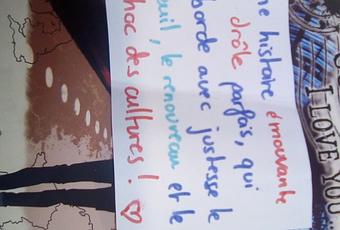 I LOVE YOU...
ne histoire émouvante
drôle parfois, qui
borde avec justesse le
euil, le renouveau et le
hoc des cultures ! ♡